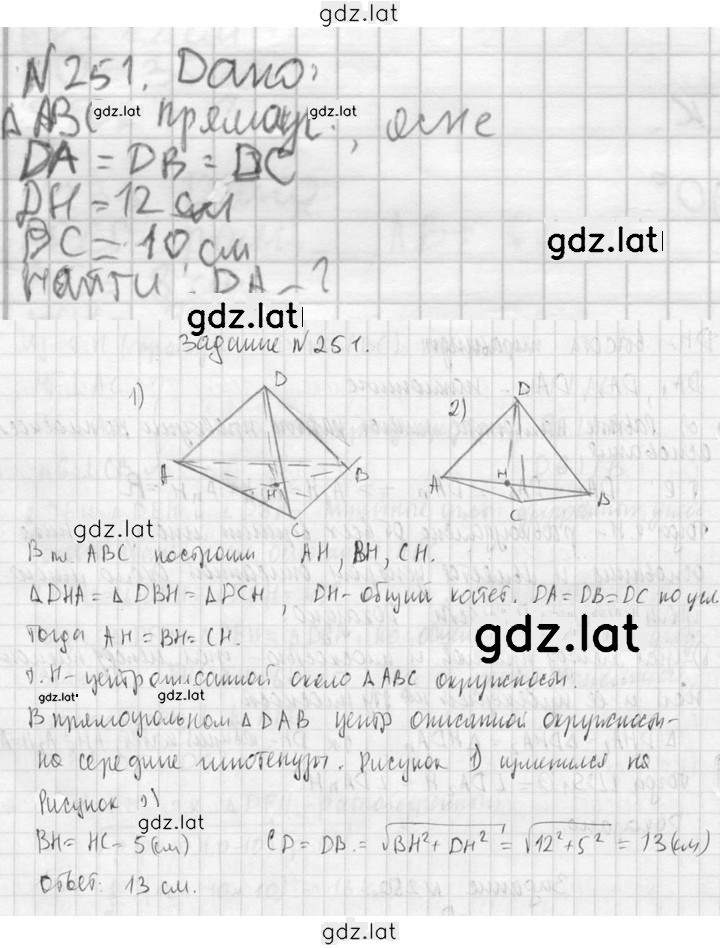 gdz.lat
N 251. Дано:
△ ABC gdz.lat прямоуг. gdz.lat, осне
DA = DB = DC
DH = 12 см
BC = 10 см gdz.lat
Найти: DA - ?
gdz.lat
Задание N 251.
1) D 2) D
A H B C A H B C
gdz.lat
В пл. ABC построим AH, BH, CH.
△DHA = △DBH = △DCH, DH - общий катет. DA = DB = DC по усл
Тогда AH = BH = CH. gdz.lat
т. H - центр описанной около △ABC окружности.
gdz.lat gdz.lat
В прямоугольном △DAB центр описанной окружности -
на середине гипотенузы. Рисунок 1) изменился на
Рисунок 2)
gdz.lat
BH = HC = 5 (см) CD = DB = √BH² + DH² = √12² + 5² = 13 (см)
Ответ: 13 см.
gdz.lat